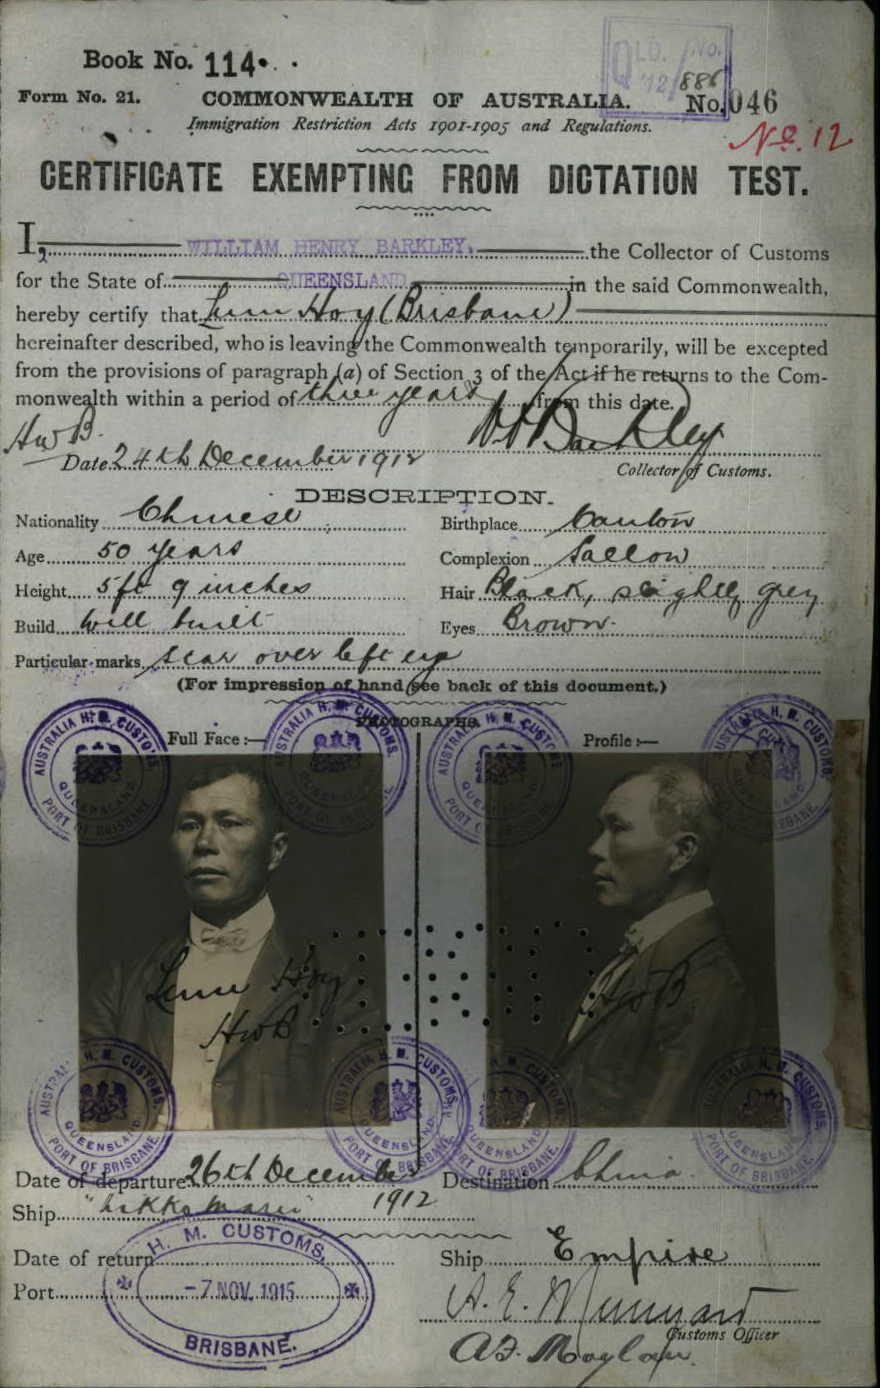 QLD. NO.
'12/886
Book No. 114.
Form No. 21. COMMONWEALTH OF AUSTRALIA. No. 046
Immigration Restriction Acts 1901-1905 and Regulations.
No. 12
CERTIFICATE EXEMPTING FROM DICTATION TEST.
I, WILLIAM HENRY BARKLEY, the Collector of Customs
for the State of QUEENSLAND in the said Commonwealth,
hereby certify that Lum Hoy (Brisbane)
hereinafter described, who is leaving the Commonwealth temporarily, will be excepted
from the provisions of paragraph (a) of Section 3 of the Act if he returns to the Com-
monwealth within a period of three years from this date.
HwB. W H Barkley
Date 24th December 1912 Collector of Customs.
DESCRIPTION.
Nationality Chinese Birthplace Canton
Age 50 years Complexion Sallow
Height 5 ft 9 inches Hair Black, slightly grey
Build Well built Eyes Brown
Particular marks scar over left eye
(For impression of hand see back of this document.)
PHOTOGRAPHS.
Full Face :— Profile :—
AUSTRALIA H. M. CUSTOMS.
QUEENSLAND
PORT OF BRISBANE
Lum Hoy
HwB
HwB
Date of departure 26th December 1912 Destination China
Ship "Nikko Maru"
Date of return Ship Empire
Port
H. M. CUSTOMS,
-7 NOV. 1915
BRISBANE.
Customs Officer